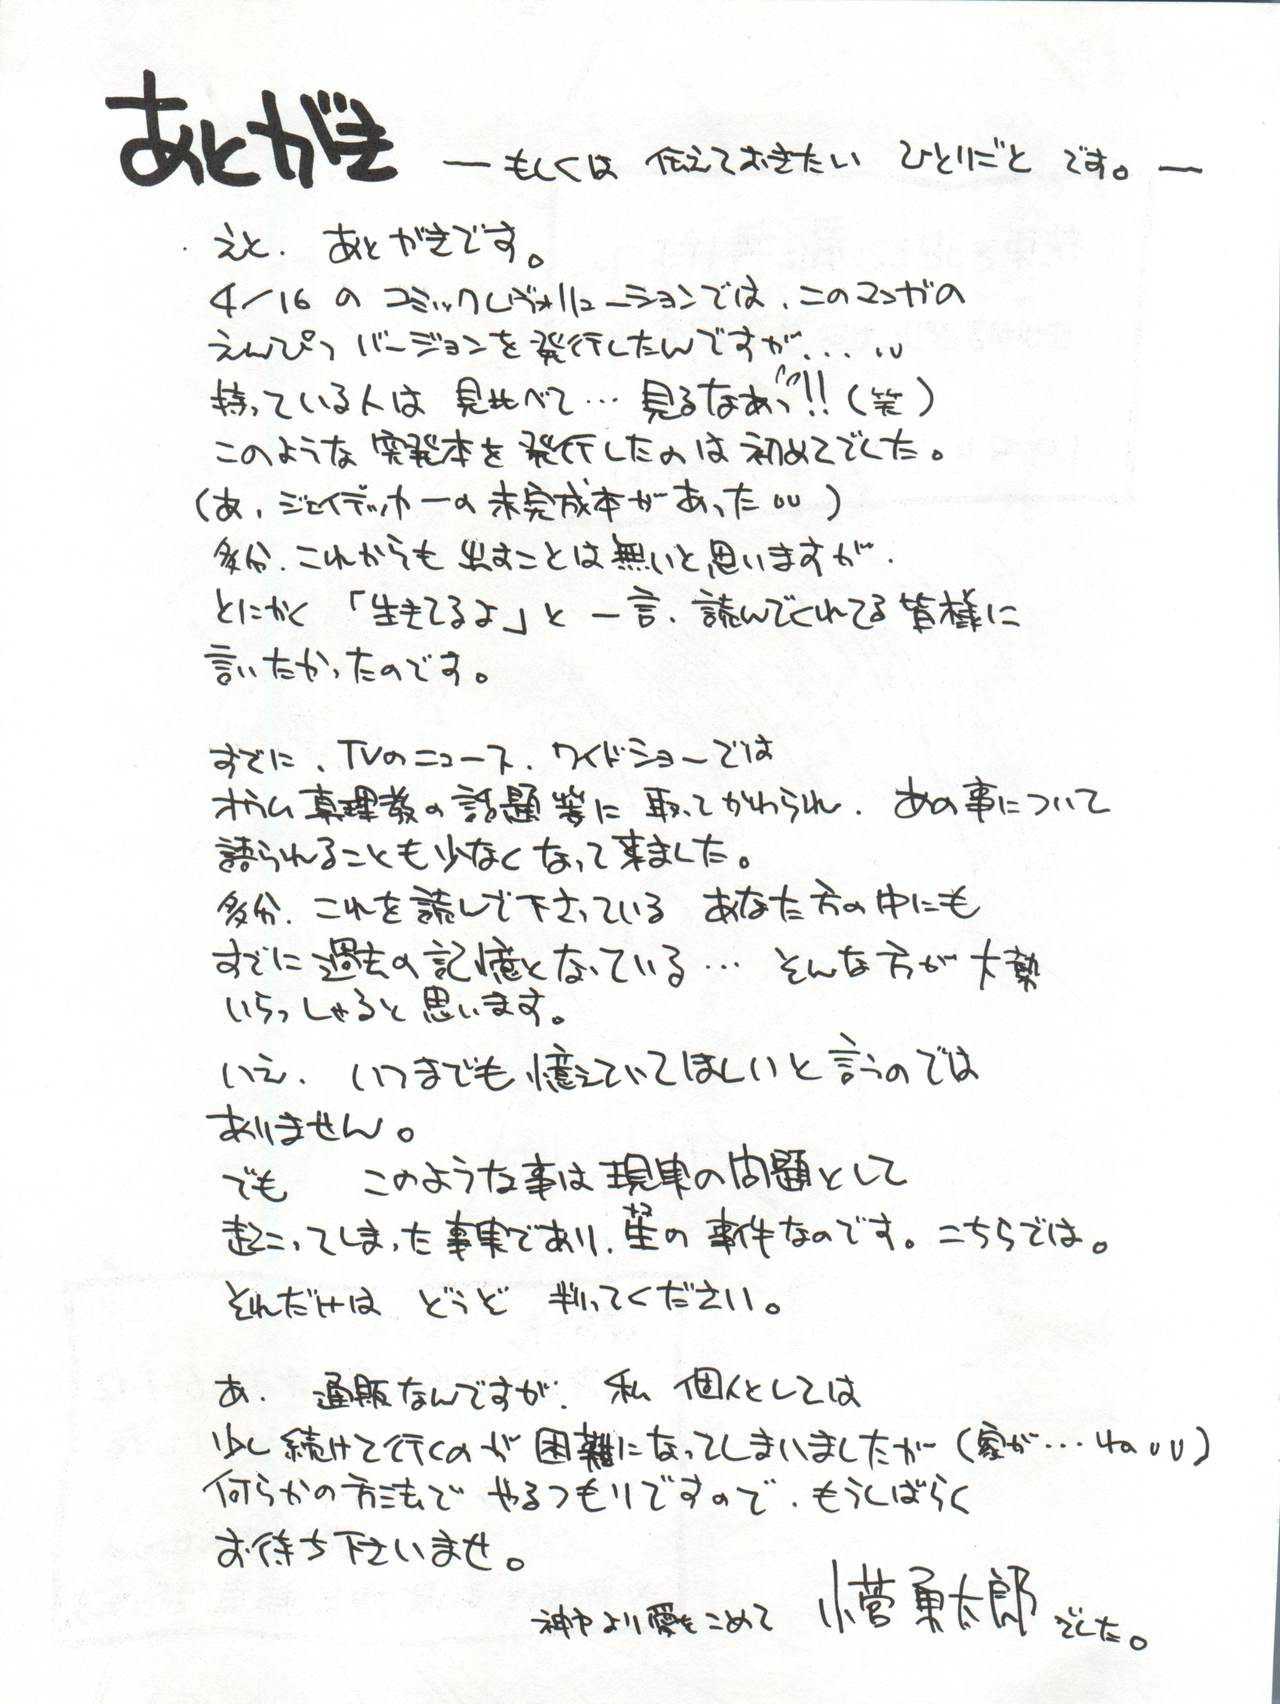 あとがき ーもしくは 伝えておきたい ひとりごと です。ー
えと、あとがきです。
4/16 の コミックレヴォリューションでは、このマンガの
えんぴつ バージョンを発行したんですが...
持っている人は 見比べて… 見るなあっ!!(笑)
このような 突発本を発行したのは初めてでした。
(あ、ジェイデッカーの未完成本があった)
多分、これからも 出すことは無いと思いますが、
とにかく「生きてるよ」と 一言、読んでくれてる皆様に
言いたかったのです。
すでに、TVのニュース、ワイドショーでは
オウム真理教の話題等に 取ってかわられ、あの事について
語られることも少なくなって来ました。
多分、これを読んで下さっている あなた方の中にも
すでに過去の記憶となっている… そんな方が大勢
いらっしゃると思います。
いえ、いつまでも憶えていてほしいと言うのでは
ありません。
でも このような事は現実の問題として
起こってしまった事実であり、の 事件なのです。こちらでは。
それだけは どうぞ 判ってください。
あ、通販なんですが、私 個人としては
少し続けて行くのが困難になってしまいましたが(家が…ね)
何らかの方法で やるつもりですので、もうしばらく
お待ち下さいませ。
神戸より愛をこめて 小菅勇太郎でした。